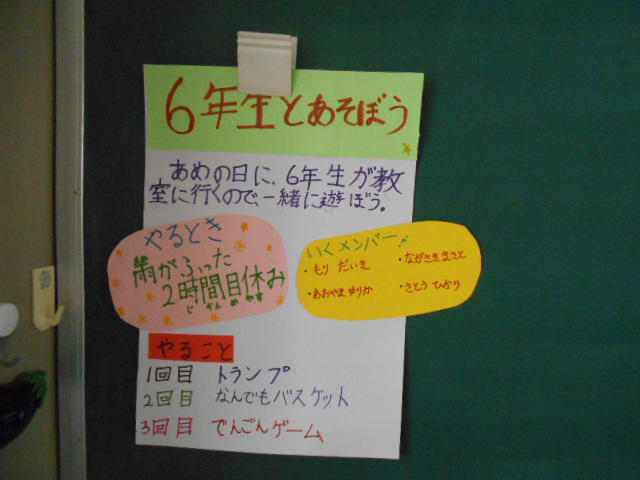 6年生とあそぼう
あめの日に、6年生が教
室に行くので、一緒に遊ぼう。
やるとき
雨がふった
2時間目休み
じかんめやす
いくメンバー
・もり だいき
・ながさき まさと
・あおやま ゆりか
・さとう ひかり
やること
1回目 トランプ
2回目 なんでもバスケット
3回目 でんごんゲーム